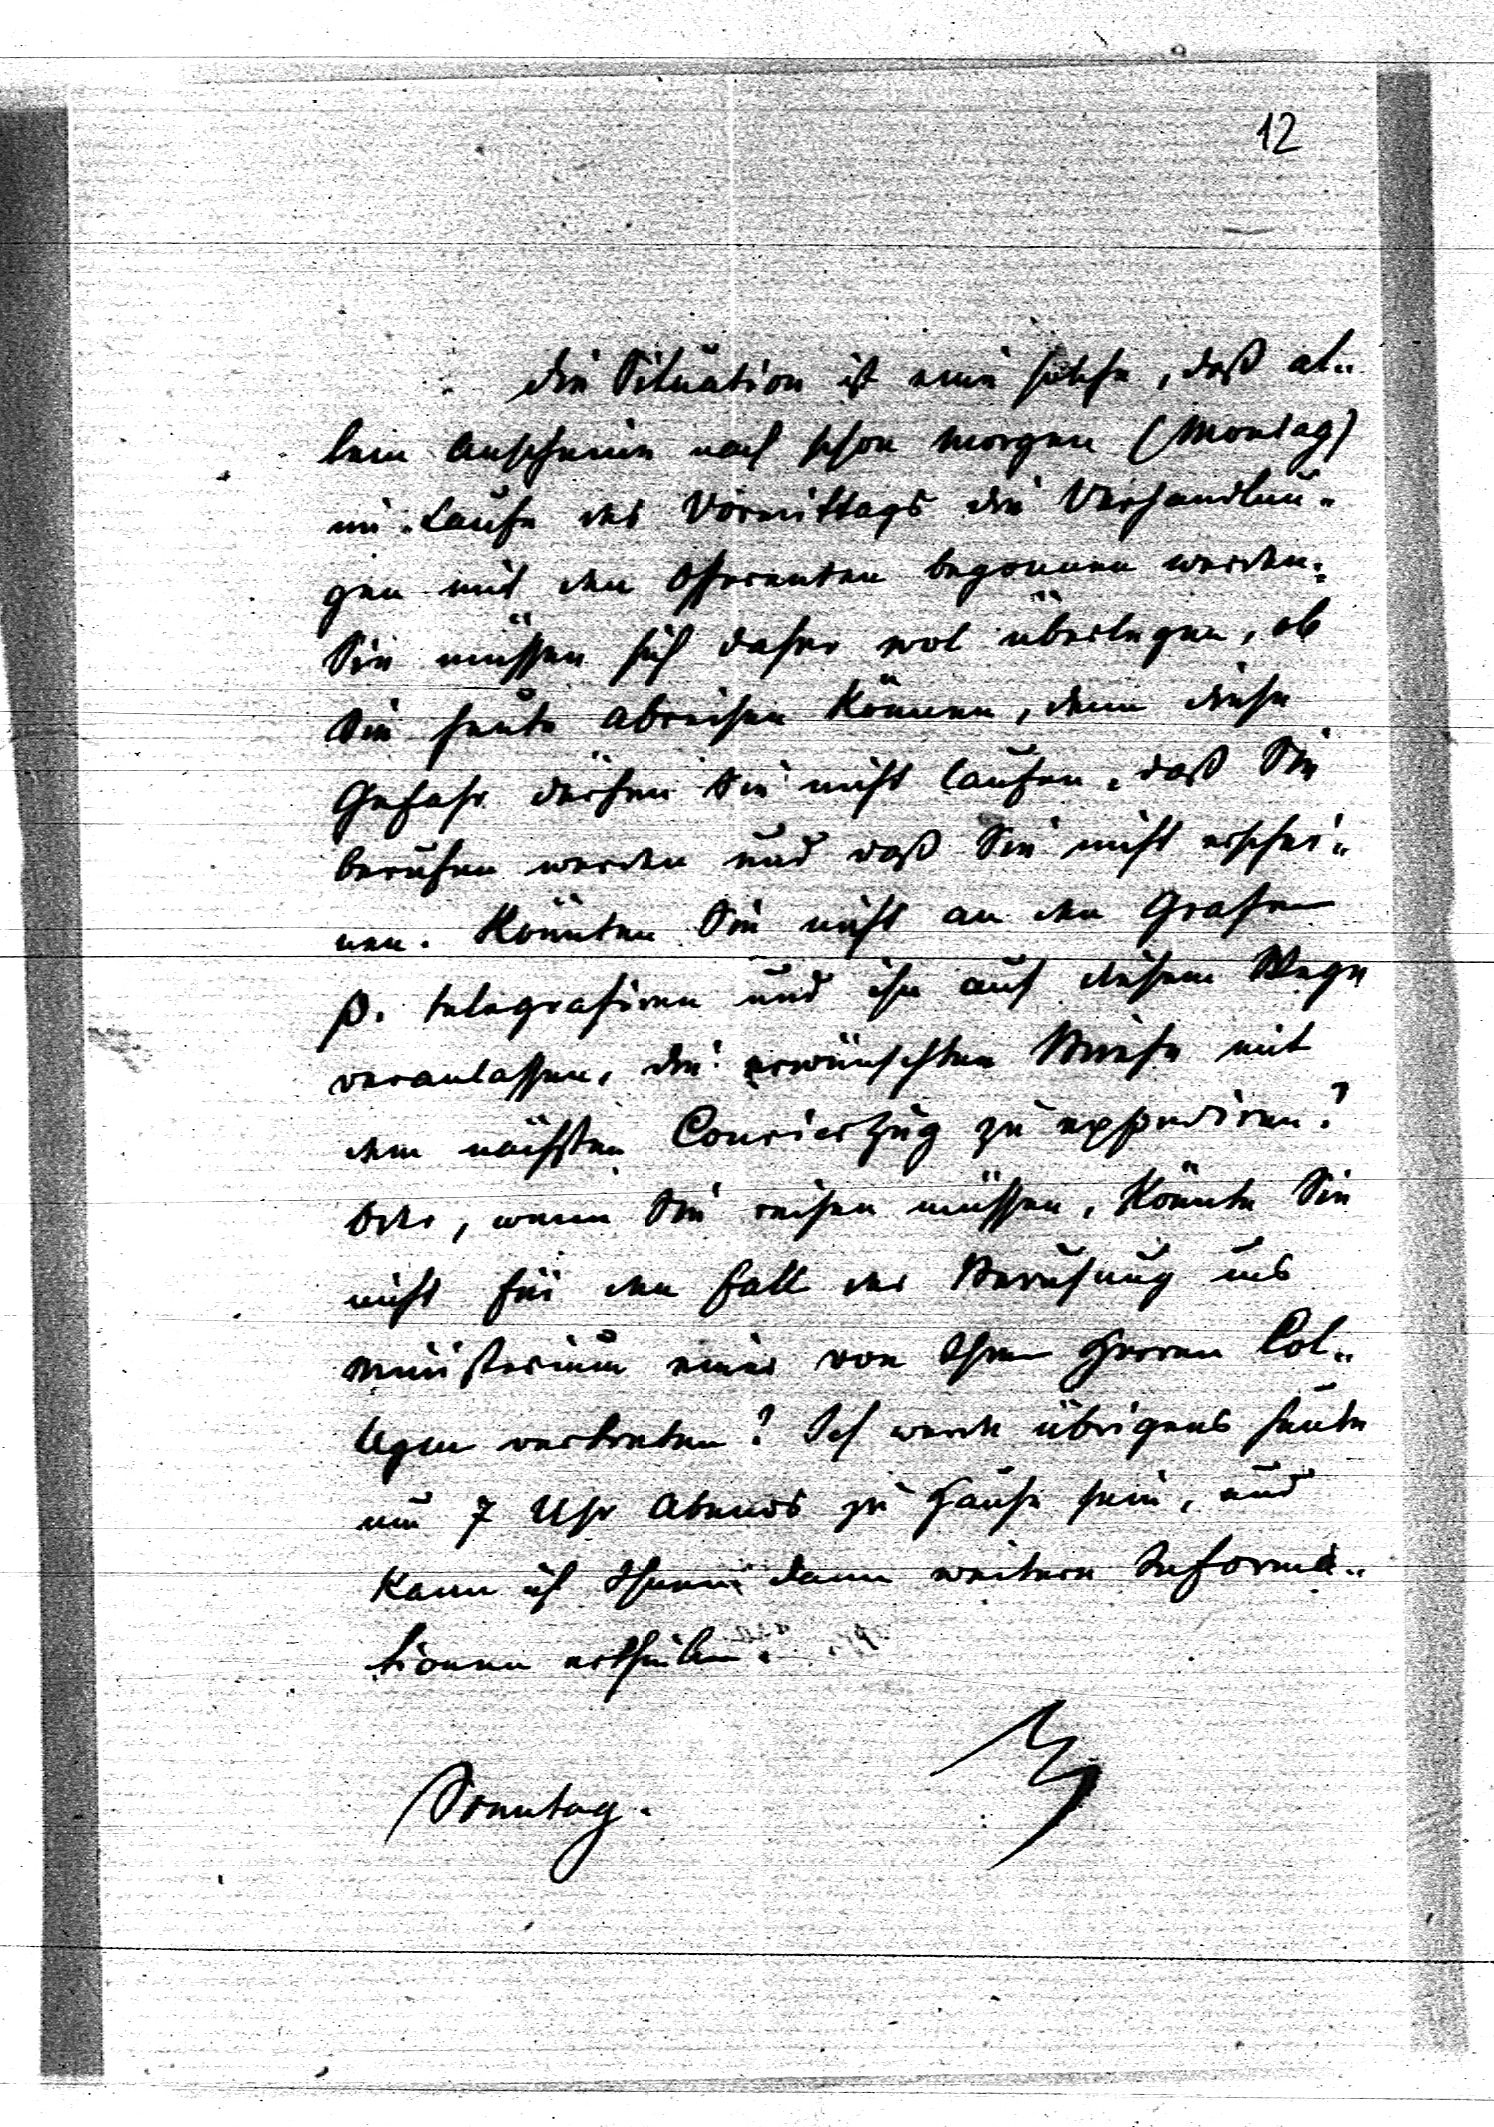 12
die Situation ist eine solche, daß al„
lem Anscheine nach schon morgen (Montag)
im Laufe des Vormittags die Verhandlun„
gen mit den Offerenten begonnen werden.
Sie müssen sich daher wol überlegen, ob
Sie heute abreisen können, denn diese
Gefahr dürfen Sie nicht laufen, daß Sie
berufen werden und daß Sie nicht erschei„
nen. Könnten Sie nicht an den Grafen
P. telegrafiren und ihn auf diesem Wege
veranlassen, die erwünschten Briefe mit
dem nächsten Courierzug zu expediren?
Oder, wenn Sie reisen müssen, könnte Sie
nicht für den Fall der Berufung ins
Ministerium einer von Ihren Herren Col„
legen vertreten? Ich werde übrigens heute
um 7 Uhr Abends zu Hause sein, und
kann ich Ihnen dann weitere Informa„
tionen ertheilen.
Sonntag.